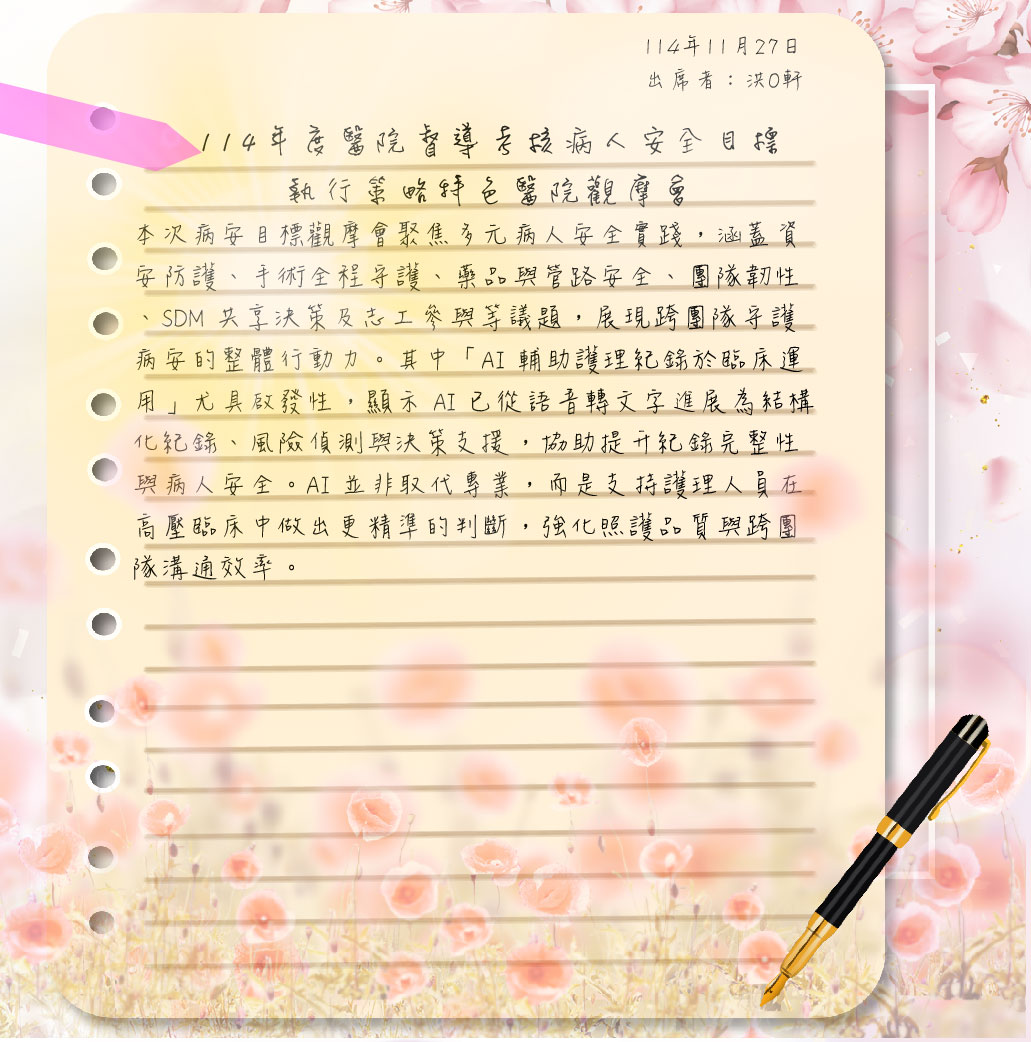 114年11月27日
出席者：洪O軒
114年度醫院督導考核病人安全目標
執行策略特色醫院觀摩會
本次病安目標觀摩會聚焦多元病人安全實踐，涵蓋資
安防護、手術全程守護、藥品與管路安全、團隊韌性
、SDM 共享決策及志工參與等議題，展現跨團隊守護
病安的整體行動力。其中「AI 輔助護理紀錄於臨床運
用」尤具啟發性，顯示 AI 已從語音轉文字進展為結構
化紀錄、風險偵測與決策支援，協助提升紀錄完整性
與病人安全。AI 並非取代專業，而是支持護理人員在
高壓臨床中做出更精準的判斷，強化照護品質與跨團
隊溝通效率。